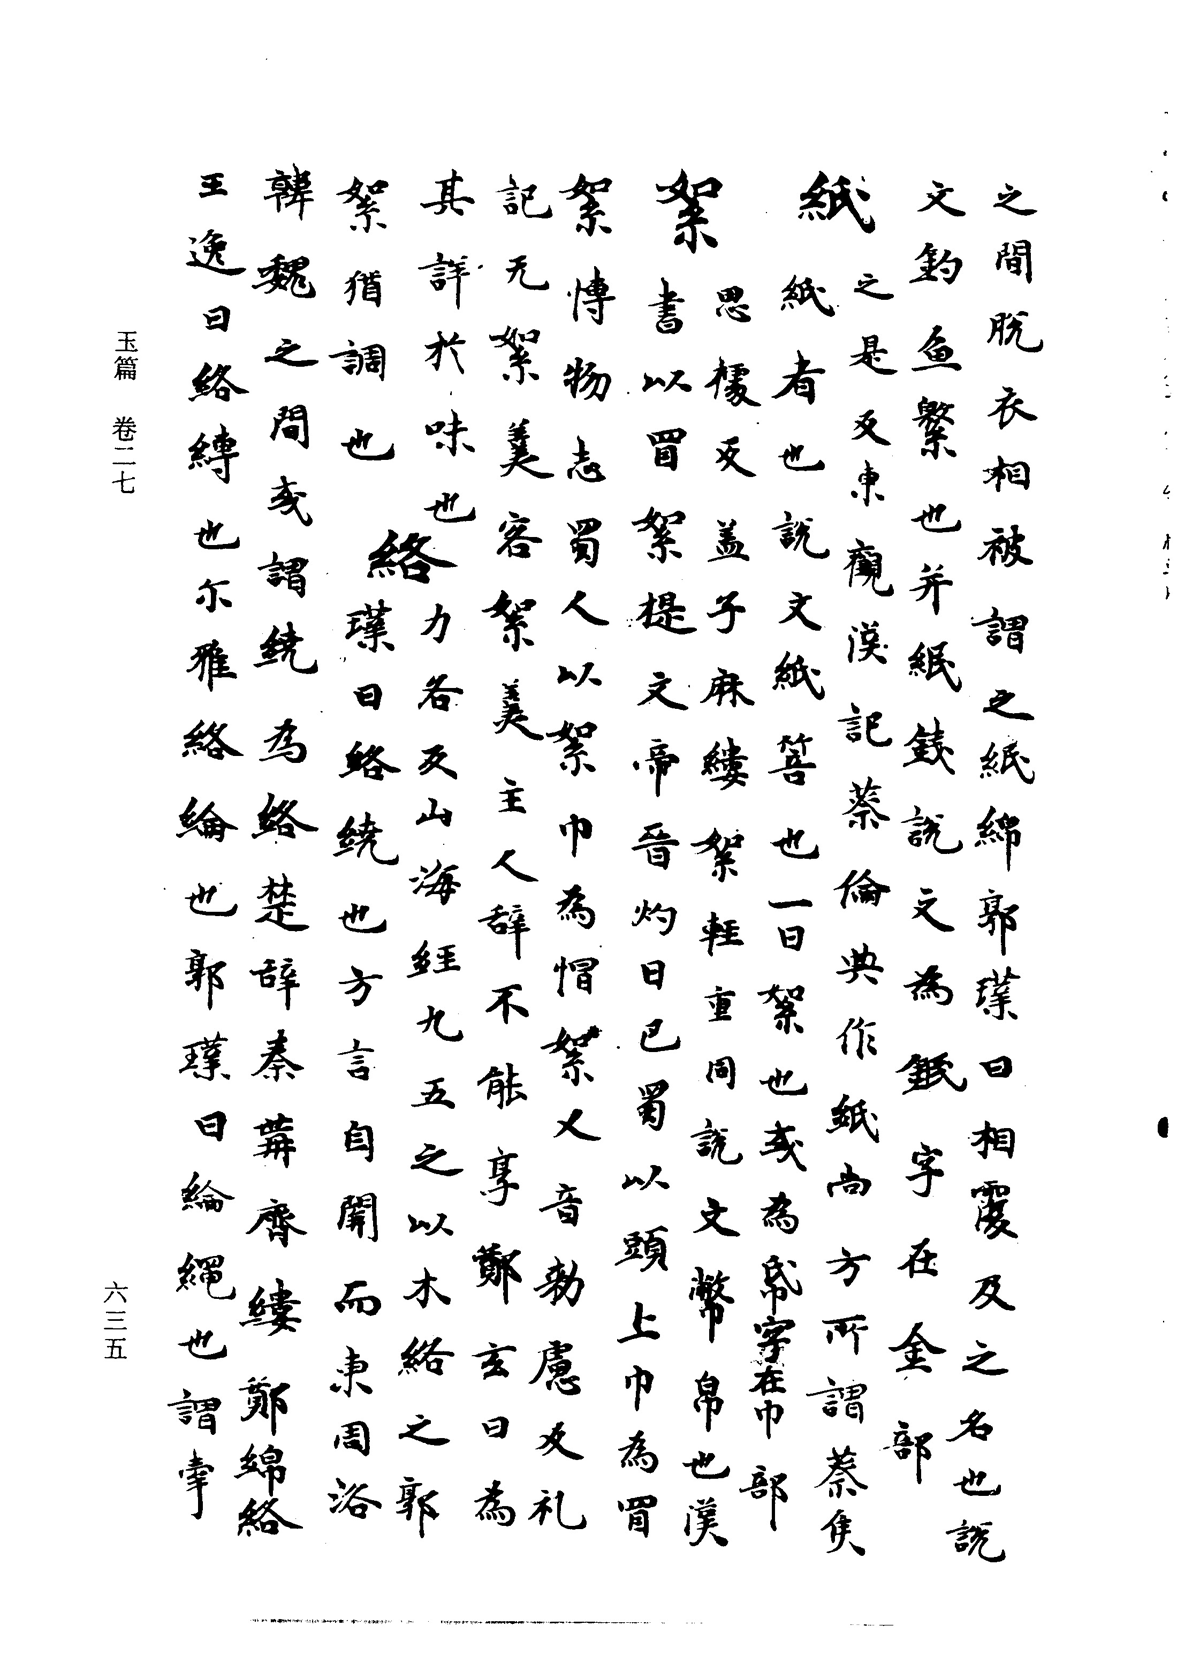 之間脫衣相被謂之緡綿郭璞曰相覆及之名也說
文釣魚繁也并緡錢說文為鍲字在金部
紙之是反東觀漢記蔡倫典作紙尚方所謂蔡侯
紙紙者也說文紙箁也一曰絮也或為帋字在巾部
絮思據反孟子麻縷絮輕重同說文弊帛也漢
書以冒絮提文帝晉灼曰巴蜀以頭上巾為冒
絮博物志蜀人以絮巾為帽絮又音勑慮反礼
記无絮羹客絮羹主人辞不能享鄭玄曰為
其詳於味也絡力各反山海經九五之以木絡之郭
絮猶調也璞曰絡繞也方言自關而東周洛
韓魏之間或謂繞為絡楚辞秦篝齊縷鄭綿絡
王逸曰絡縛也尒雅絡綸也郭璞曰綸繩也謂牽
玉篇 卷二七
六三五